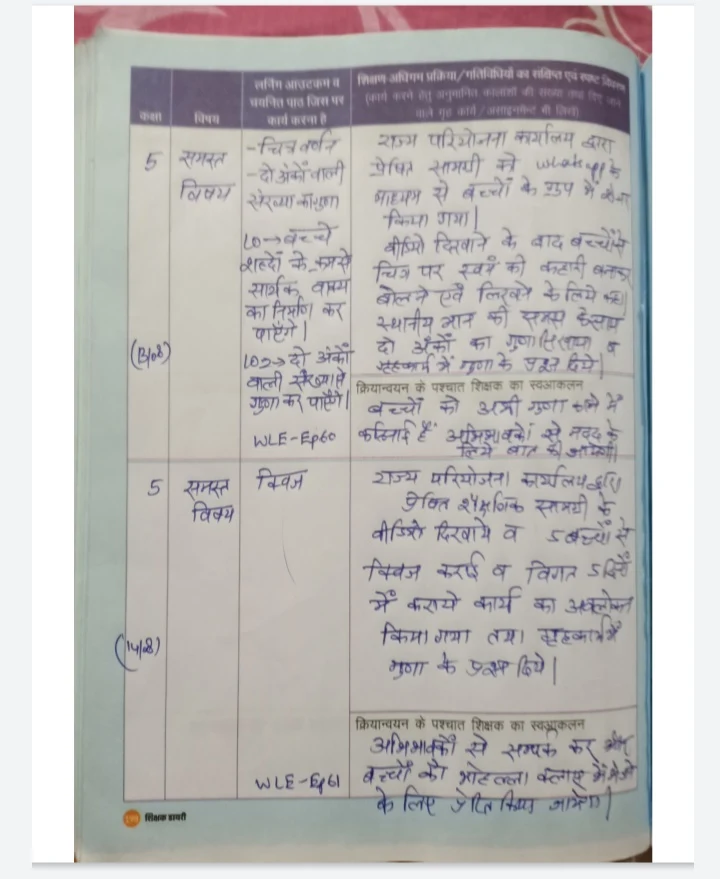 कक्षा
विषय
लर्निंग आउटकम व
चयनित पाठ जिस पर
कार्य करना है
शिक्षण अधिगम प्रक्रिया/गतिविधियों का संक्षिप्त एवं स्पष्ट विवरण
(कार्य करने हेतु अनुमानित कालांशों की संख्या तथा दिए जाने
वाले गृह कार्य/असाइनमेन्ट भी लिखें)
5
(13/08)
समस्त
विषय
-चित्र वर्णन
-दो अंकों वाली
संख्या का गुणा
LO→बच्चे
शब्दों के क्रम से
सार्थक वाक्य
का निर्माण कर
पाएंगे।
LO2→दो अंकों
वाली संख्या से
गुणा कर पाएंगे।
WLE-Ep60
राज्य परियोजना कार्यालय द्वारा
प्रेषित सामग्री को whatsapp के
माध्यम से बच्चों के ग्रुप में
किया गया।
वीडियो दिखाने के बाद बच्चों से
चित्र पर स्वयं की कहानी बनाकर
बोलने एवं लिखने के लिये कहा।
स्थानीय मान की समझ के साथ
दो अंकों का गुणा सिखाया व
गृहकार्य में गुणा के प्रश्न दिये।
क्रियान्वयन के पश्चात शिक्षक का स्वआकलन
बच्चों को अभी गुणा करने में
कठिनाई है अभिभावकों से मदद के
लिये बात की जायेगी।
5
(14/8)
समस्त
विषय
क्विज
WLE-Ep61
राज्य परियोजना कार्यालय द्वारा
प्रेषित शैक्षणिक सामग्री के
वीडियो दिखाये व 5 बच्चों से
क्विज कराई व विगत 5 दिनों
में कराये कार्य का अवलोकन
किया गया तथा गृहकार्य में
गुणा के प्रश्न दिये।
क्रियान्वयन के पश्चात शिक्षक का स्वआकलन
अभिभावकों से सम्पर्क कर
बच्चों को मोहल्ला क्लास में भेजने
के लिए प्रेरित किया जायेगा।
शिक्षक डायरी